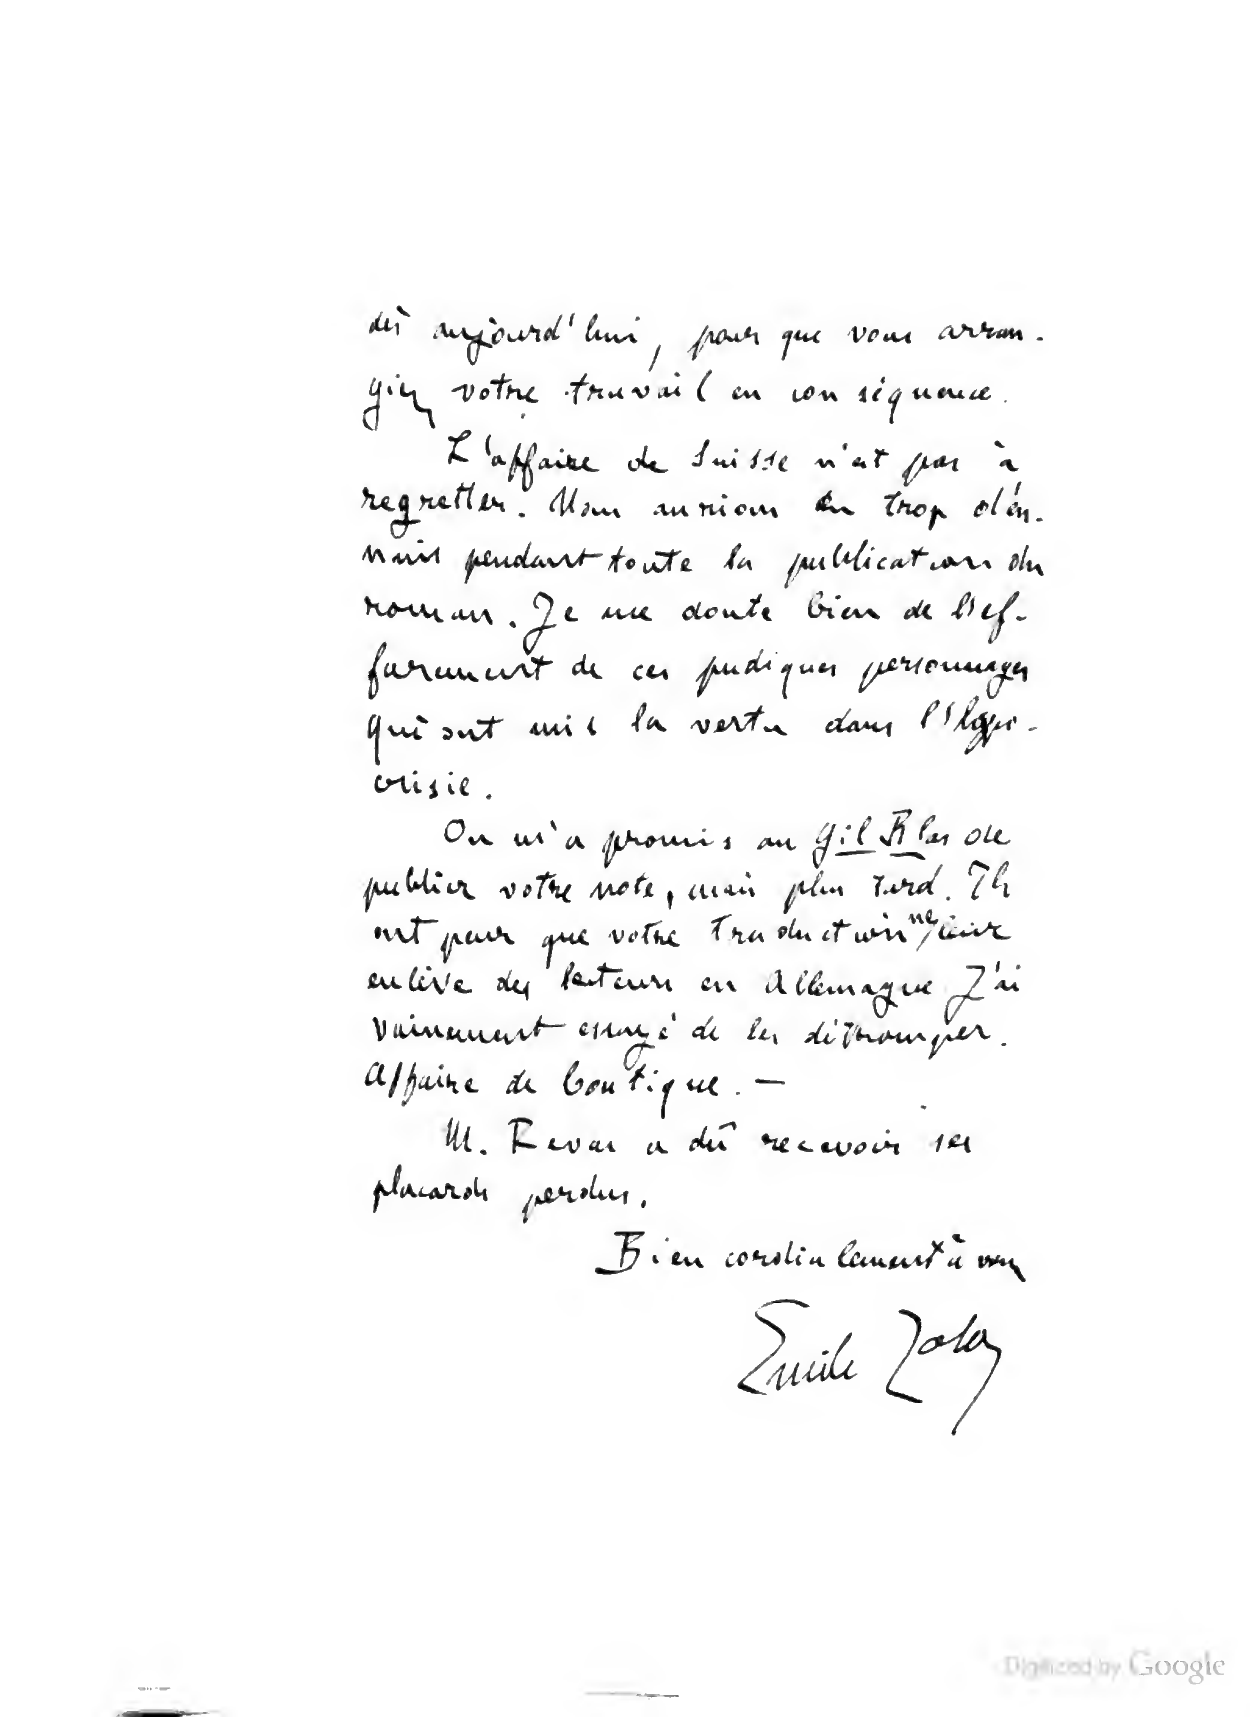 dès aujourd'hui, pour que vous arran-
giez votre travail en conséquence.
L'affaire de Suisse n'est pas à
regretter. Nous aurions eu trop d'en-
nuis pendant toute la publication du
roman. Je me doute bien de l'ef-
farement de ces pudiques personnages
qui ont mis la vertu dans l'hypo-
crisie.
On m'a promis au Gil Blas de
publier votre note, mais plus tard. Ils
ont peur que votre traduction ne leur
enlève des lecteurs en Allemagne. J'ai
vainement essayé de les détromper.
Affaire de boutique. —
M. a dû recevoir ses
placards perdus.
Bien cordialement à vous
Emile Zola
Digitized by Google